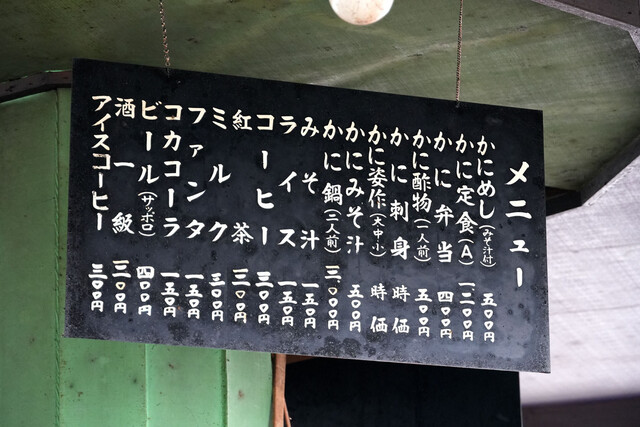 メニュー
かにめし(みそ汁付) 五〇〇円
かに定食(A) 一、二〇〇円
かに弁当 四〇〇円
かに酢物(一人前) 五〇〇円
かに刺身 時価
かに姿作(大中小) 時価
かにみそ汁 五〇円
かに鍋(二人前) 三、〇〇〇円
みそ汁 一五〇円
ライス 一五〇円
コーヒー 三〇〇円
紅茶 三〇〇円
ミルク 三〇〇円
ファンタ 一五〇円
コカコーラ 一五〇円
ビール(サッポロ) 四〇〇円
酒一級 三〇〇円
アイスコーヒー 三〇〇円